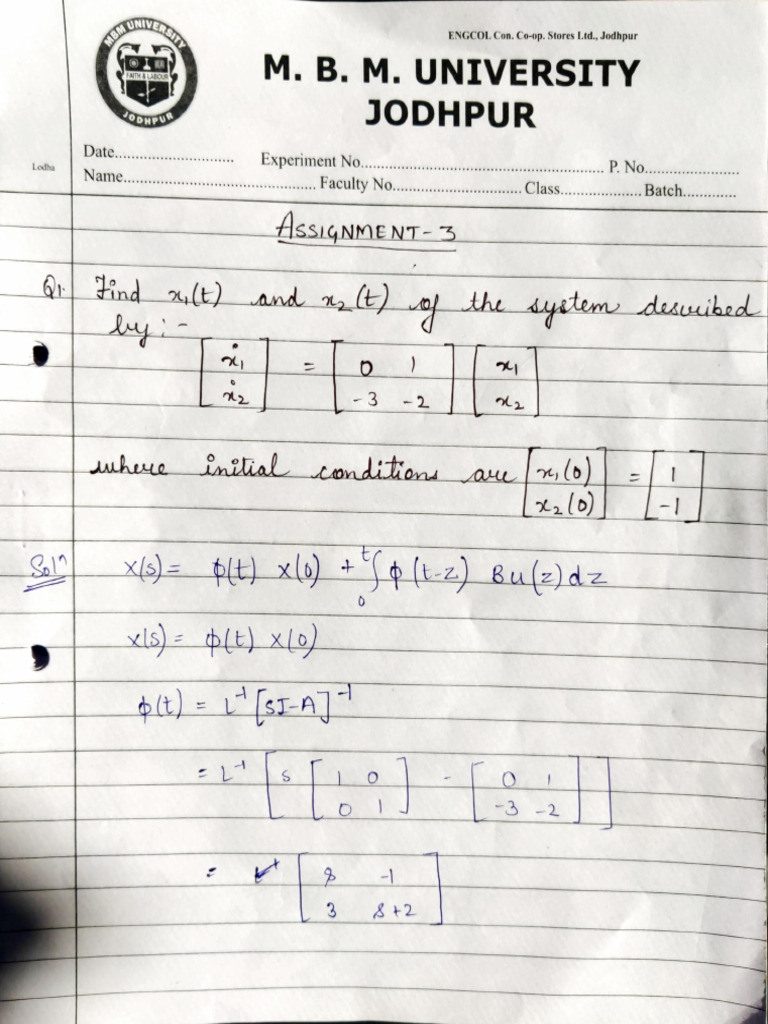 ENGCOL Con. Co-op. Stores Ltd., Jodhpur
MBM UNIVERSITY
FAITH & LABOUR
JODHPUR
M. B. M. UNIVERSITY
JODHPUR
Lodha
Date........................... Experiment No............................................................ P. No......................
Name............................................... Faculty No................................ Class.................... Batch.............
ASSIGNMENT-3
Q1. Find x₁(t) and x₂(t) of the system described
by:-
[ẋ₁ ; ẋ₂] = [0 1 ; -3 -2] [x₁ ; x₂]
where initial conditions are [x₁(0) ; x₂(0)] = [1 ; -1]
Solⁿ X(s) = ϕ(t) X(0) + ₀∫ᵗ ϕ(t-z) Bu(z)dz
X(s) = ϕ(t) X(0)
ϕ(t) = L⁻¹ [SI-A]⁻¹
= L⁻¹ [S [1 0 ; 0 1] - [0 1 ; -3 -2]]
= [s -1 ; 3 s+2]